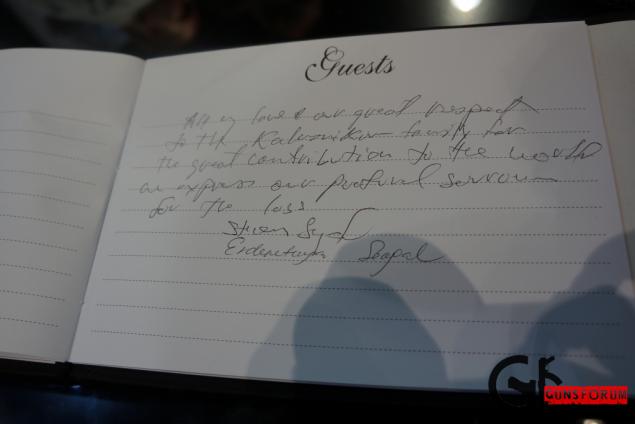 Guests
All my love & our great respect
to the Kalasnikov family for
the great contribution to the world
an express our profound sorrow
for the loss
Steven
GUNSFORUM